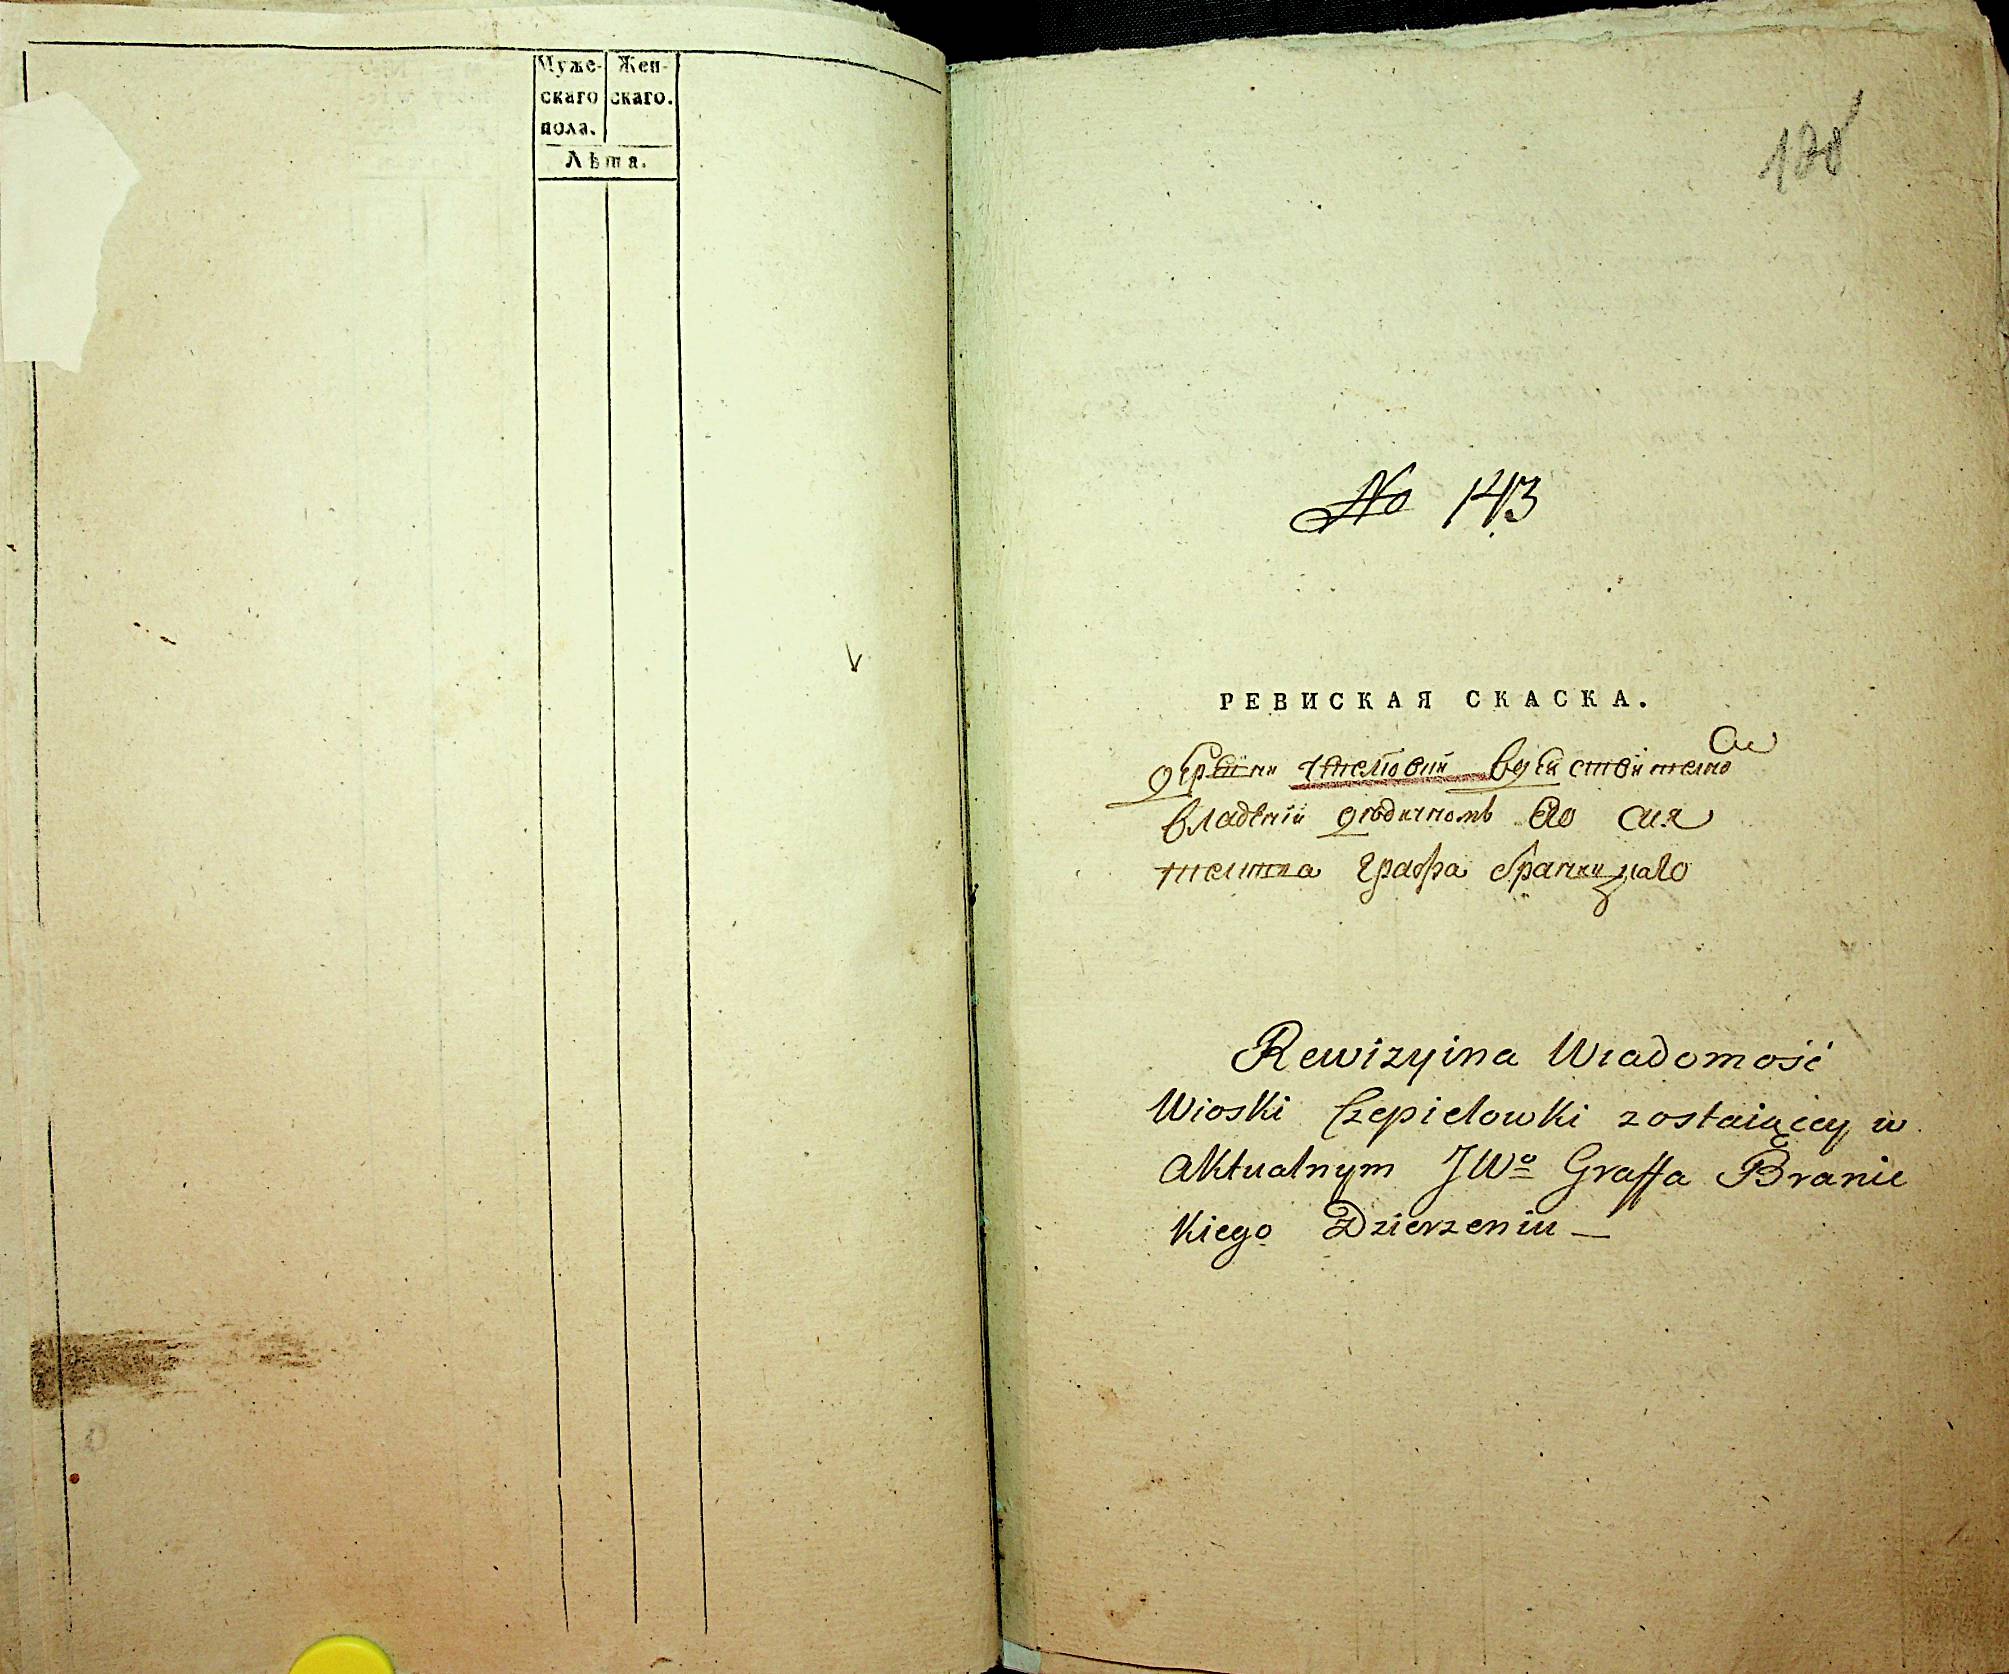 Муже-
скаго
пола.
Жен-
скаго.
Лѣта.
128
No 143
РЕВИСКАЯ СКАСКА.
деревни
владѣнiи его сия
тельства графа браницкаго
Rewizyina Wiadomość
Wioski Czepielowki zostaiącey w
Aktualnym JWo Graffa Branic
kiego Dzierzeniu —